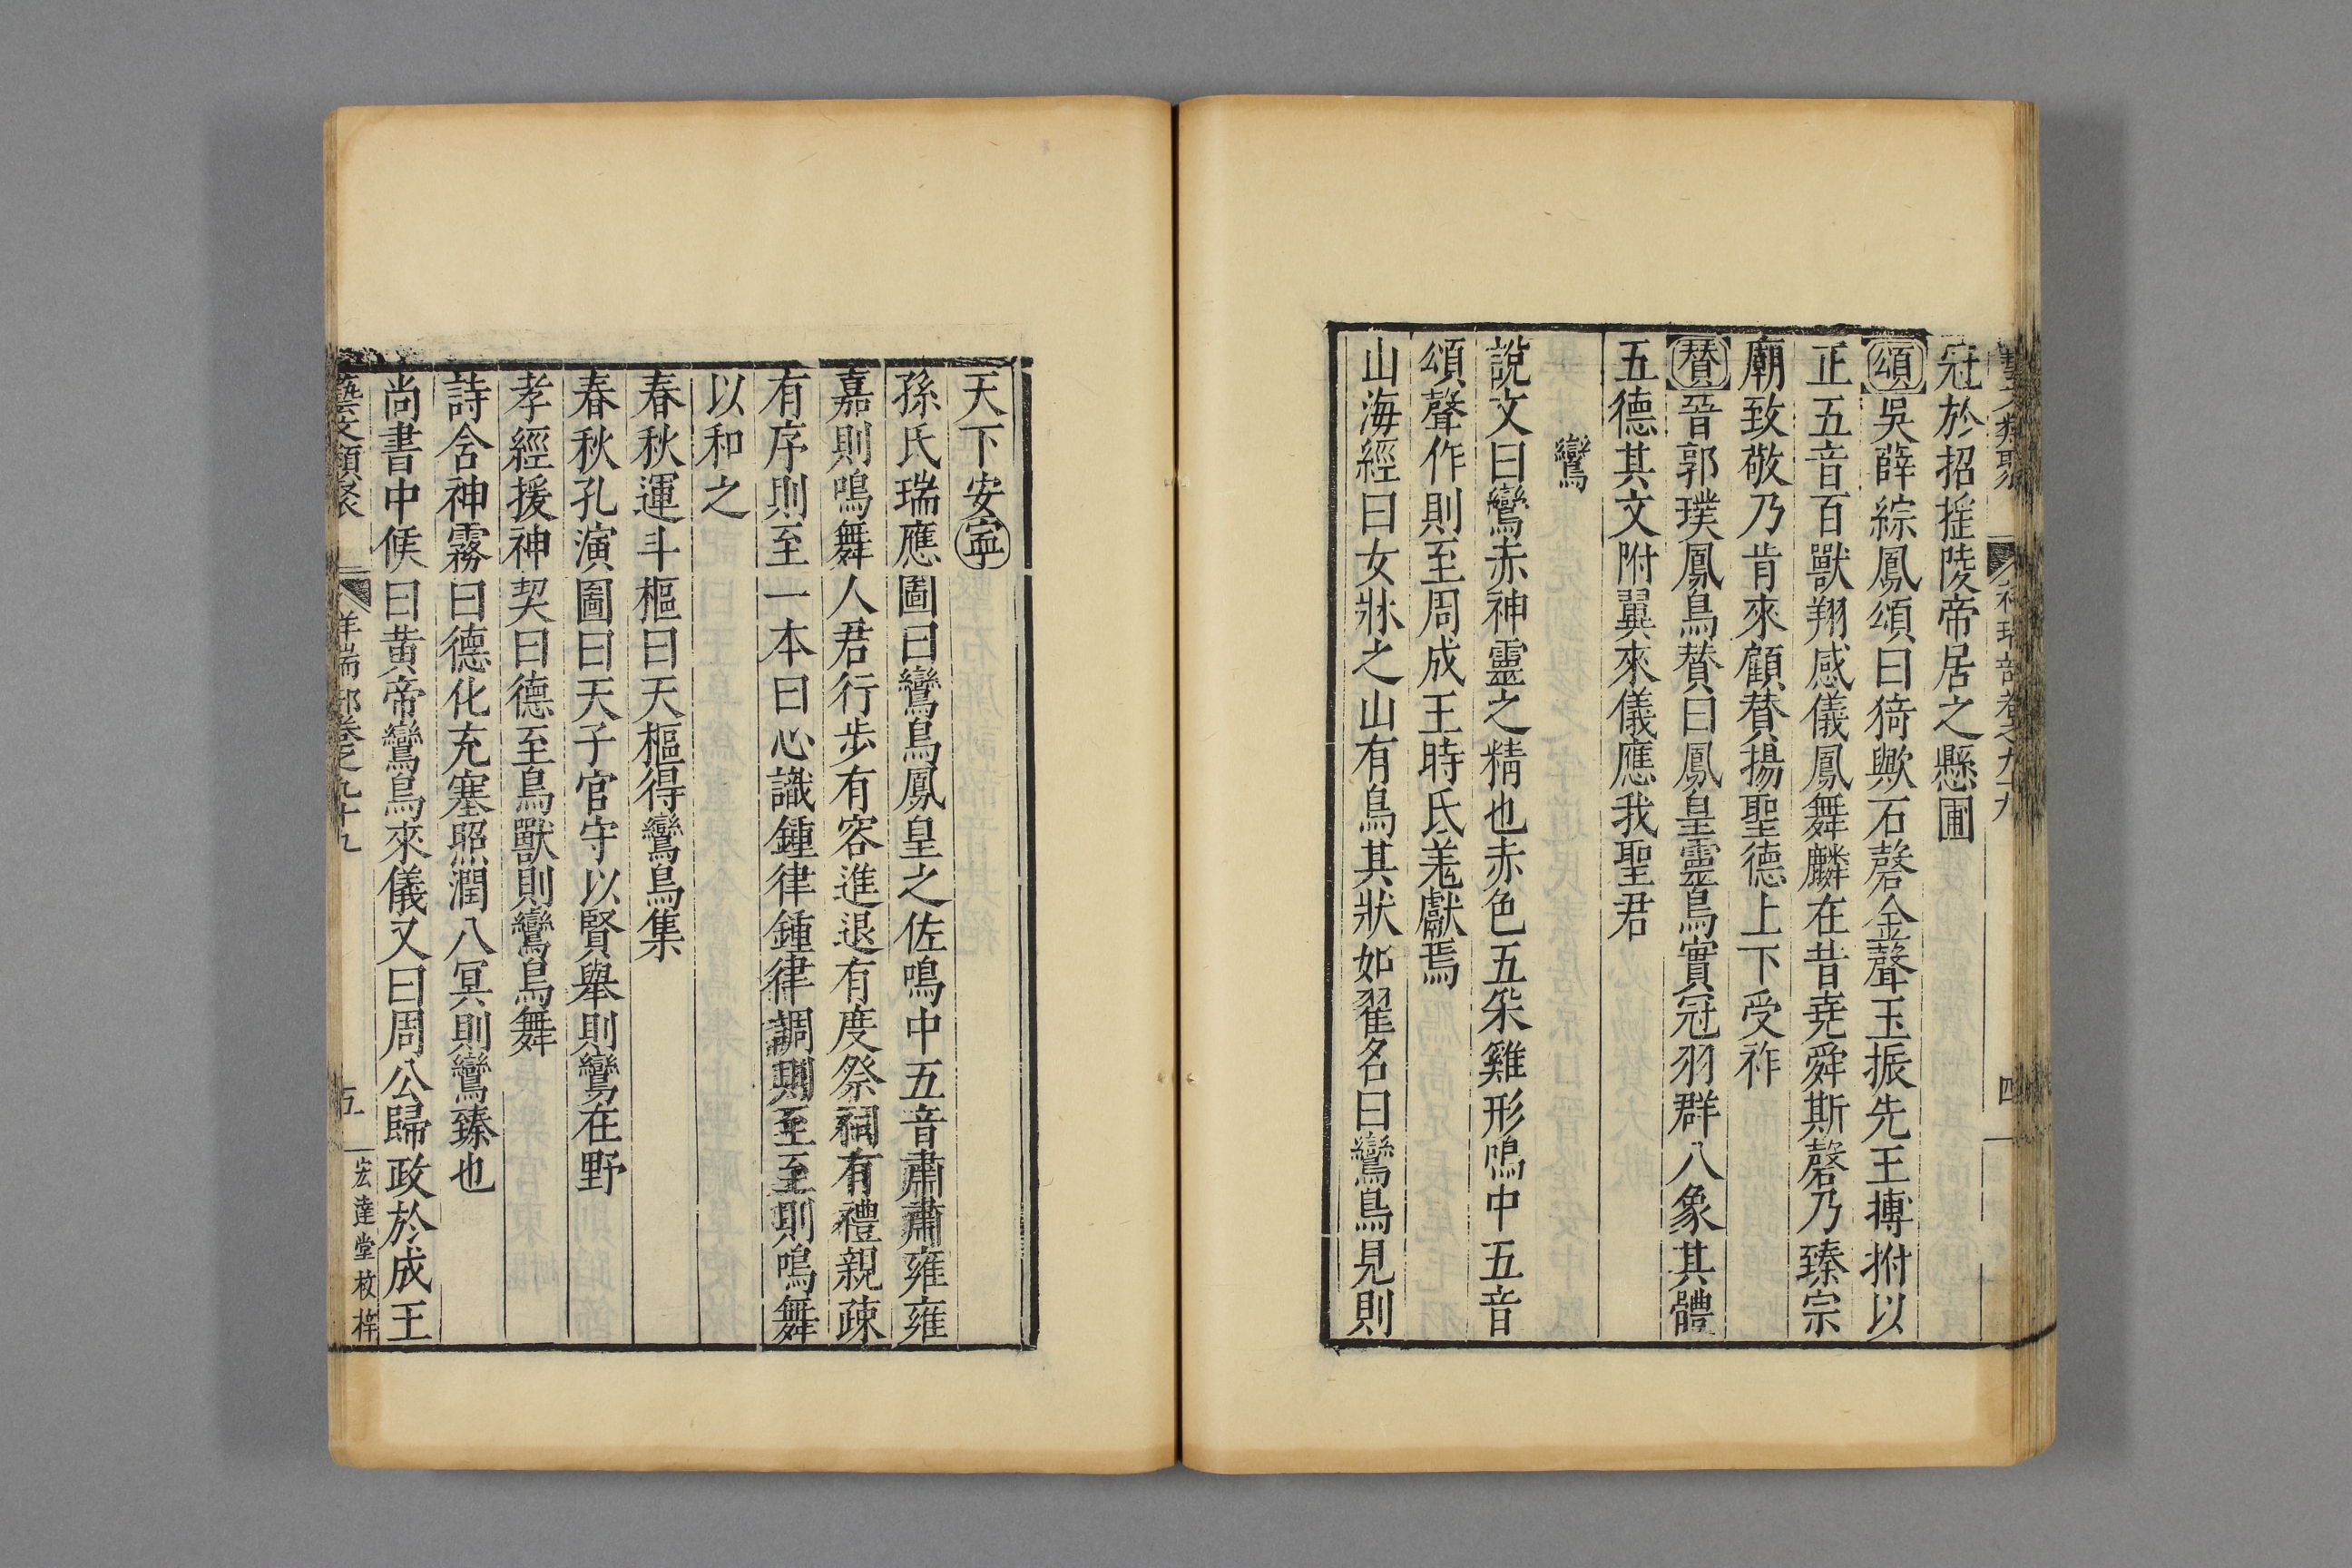 冠於招搖陵帝居之懸圃
頌吳薛綜鳳頌曰猗歟石磬金聲玉振先王搏拊以
正五音百獸翔感儀鳳舞麟在昔堯舜斯磬乃臻宗
廟致敬乃肯來顧賛揚聖德上下受祚
賛晉郭璞鳳鳥賛曰鳳皇靈鳥實冠羽群八象其體
五德其文附翼來儀應我聖君
鸞
說文曰鸞赤神靈之精也赤色五采雞形鳴中五音
頌聲作則至周成王時氐羌獻焉
山海經曰女牀之山有鳥其狀如翟名曰鸞鳥見則
天下安寧
孫氏瑞應圖曰鸞鳥鳳皇之佐鳴中五音肅肅雍雍
嘉則鳴舞人君行步有容進退有度祭祠有禮親疎
有序則至一本曰心識鍾律鍾律調則至至則鳴舞
以和之
春秋運斗樞曰天樞得鸞鳥集
春秋孔演圖曰天子官守以賢舉則鸞在野
孝經援神契曰德至鳥獸則鸞鳥舞
詩含神霧曰德化充塞照潤八冥則鸞臻也
尚書中候曰黃帝鸞鳥來儀又曰周公歸政於成王
藝文類聚 祥瑞部卷之九十九 五 宏達堂校梓